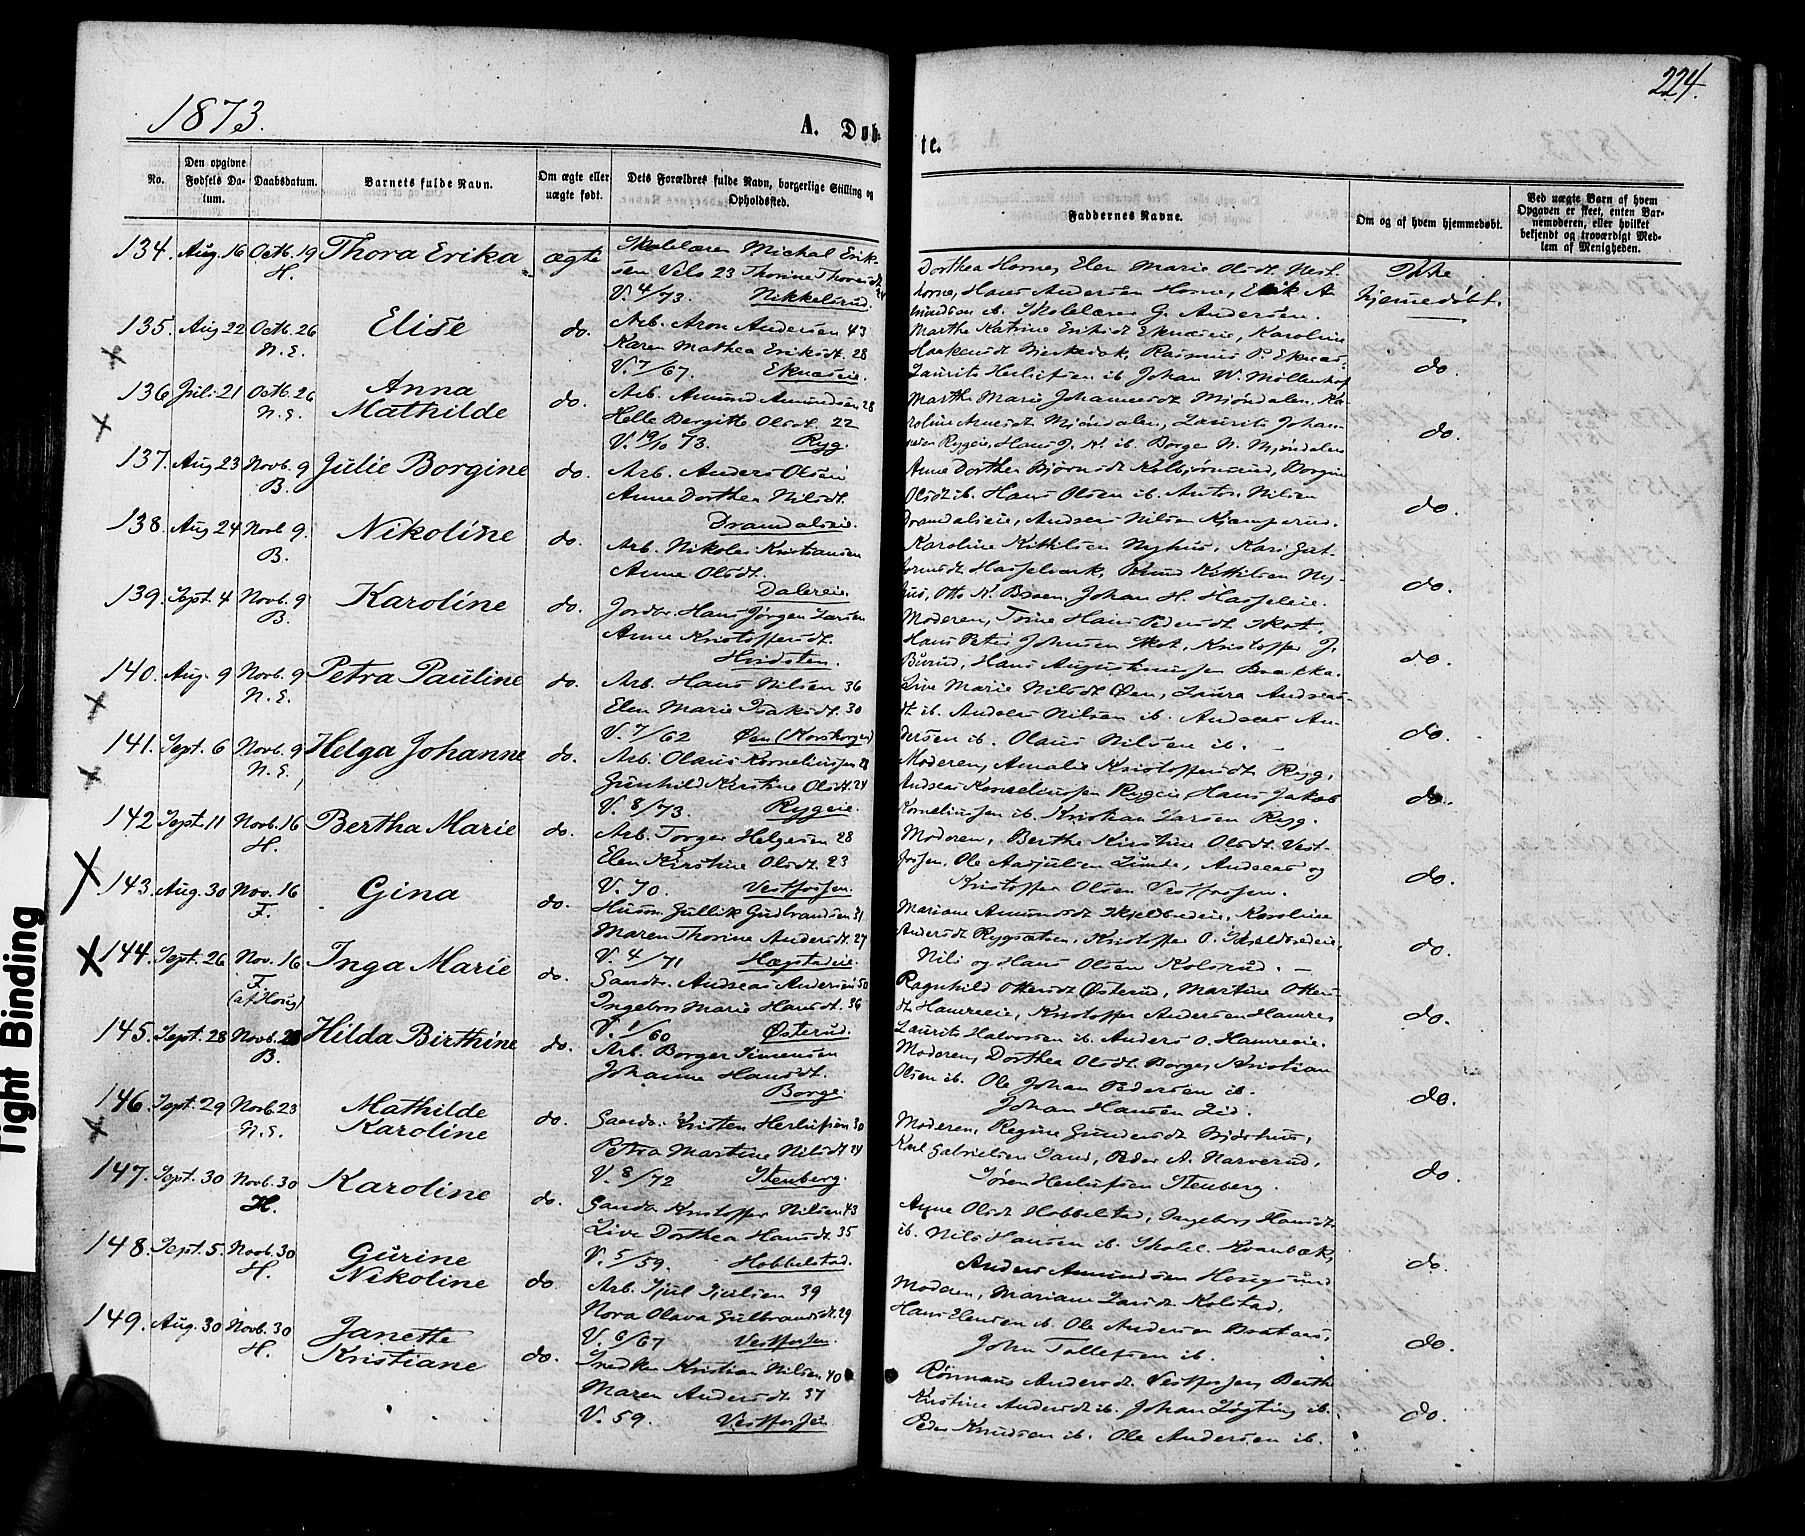 1873.
A. Døb-
te.
224.
No.
Den opgivne Fødsels Da-
tum.
Daabsdatum.
Barnets fulde Navn.
Om ægte eller
uægte født.
Dets Forældres fulde Navn, borgerlige Stilling og
Opholdssted.
Faddernes Navne.
Om og af hvem hjemmedøbt.
Ved uægte Børn af hvem
Opgaven er skeet, enten Bar-
nemoderen, eller hvilket
bekjendt og troværdigt Med-
lem af Menigheden.
134. Aug. 16 Octb. 19 Thora Erika ægte Skolelærer Michal Erik-
H. sen Vils. 23 Thorine Thorsdt. 24
V. 4/73. Nikkelsrud.
Dorthea Horne, Elen Marie Olsdt. Vest-
horne, Hans Andersen Horne, Erik A-
mundsen ib. Skolelærer G. Andersen.
Ikke
hjemmedøbt.
135. Aug 22 Octb. 26 Elise do. Arb. Aron Andersen 43
N.E. Karen Mathea Eriksdt. 28
V. 7/67. Eknæseie.
Marthe Katrine Eriksdt Eknæseie, Karoline
Haakensdt Bjerkedok, Rasmus P. Eknæs,
Laurits Herlufsen ib Johan W. Möllenhof
do.
136 Juli 21 Octb. 26 Anna
N.E. Mathilde do. Arb. Amund Amundsen 28
Helle Bergitte Olsdt. 22
V. 19/10 73. Ryg.
Marthe Marie Johannesdt Mjøndalen. Ka-
roline Arnesdt Mjøndalen, Laurits Johan-
nesen Rygeie, Hans J. N. ib. Borge N. Mjøndalen
do.
137. Aug 23 Novb. 9 Julie Borgine do. Arb. Anders Olsen
B. Anne Dorthea Nilsdt.
Dramdalseie.
Anne Dorthea Bjørnsdt Kolbjørnsrud, Borgine
Olsdt ib. Hans Olsen ib. Anton Nilsen
Dramdalseie, Andreas Nilsen Kjemperud.
do.
138. Aug 24 Novb. 9. Nikoline do. Arb. Nikolai Kristiansen
B. Anne Olsdt.
Dalereie.
Karoline Kittilsen Nyhus, Kari Gut-
tormsdt Hasselvерk, Knud Kittilsen Ny-
hus, Otto N. Braen, Johan H. Hasseleie.
do.
139. Sept. 4 Novb. 9 Karoline do. Jordbr. Hans Jørgen Larsen
B. Anne Kristoffersdt.
Hvidsten.
Moderen, Trine Hans Pedersdt Skot,
Hans Peter Johnsen Skot, Kristoffer J.
Burud, Hans Augustinussen Brakka.
do.
140. Aug. 9 Novb. 9 Petra Pauline do. Arb. Hans Nilsen 36
N.E. Elen Marie Isaksdt. 30
V. 7/62 Øen (Horskogen)
Live Marie Nilsdt Øen, Laura Andreas-
dt ib. Andreas Nilsen ib. Andreas An-
dersen ib. Olaus Nilsen ib.
do.
141. Sept. 6 Novb. 9 Helga Johanne do. Arb. Olaus Korneliussen 28
N.E. Gunhild Kirstine Olsdt. 24
V. 8/73. Rygeie.
Moderen, Amalie Kristoffersdt Ryg,
Andreas Korneliussen Rygeie, Hans Jakob
Korneliussen ib. Kristian Larsen Ryg.
do.
142 Sept. 11 Novb. 16 Bertha Marie do. Arb. Torger Helgesen 28
H. Elen Kirstine Olsdt. 23
V. 70. Vestfossen.
Moderen, Berthe Kirstine Olsdt. Vest-
fossen, Ole Aasjulsen Lunde, Andreas og
Kristoffer Olsen Vestfossen.
do.
143. Aug. 30 Nov. 16 Gina do. Husm. Gullik Gudbrandsen 31
F. Maren Thorine Andersdt. 27
V. 4/71 Hægstadeie.
Mariane Amundsdt Skjelbredeie, Karoline
Andersdt Rygsæteren, Kristoffer O. Skjelbredeie
Nils og Hans Olsen Kolsrud.
do.
144. Sept. 26 Nov. 16 Inga Marie do. Gaardbr. Andreas Andersen 50
F. Ingeborg Marie Hansdt. 36
(af Houg) V. 1/60 Østerud.
Ragnhild Ottersdt Østerud, Martine Otters-
dt Hamreeie, Kristoffer Andersen Hamre,
Laurits Halvorsen ib. Anders O. Hamreeie.
do.
145. Sept. 28 Novb. 23 Hilda Birthine do. Arb. Borger Simensen
B. Johanne Hansdt.
Borge.
Moderen, Dorthea Olsdt. Borge, Kristian
Olsen ib. Ole Johan Pedersen ib.
Johan Hansen Lid.
do.
146 Sept. 29 Novb. 23 Mathilde
N.E. Karoline do. Gaardbr. Kristen Herlufsen 30
Petra Martine Nilsdt 24
V. 8/72 Stenberg.
Moderen, Regine Gundersdt Bjørshus,
Karl Gabrielsen Sand, Peder A. Narverud,
Søren Herlufsen Stenberg.
do.
147. Sept. 30 Novb. 30 Karoline do. Gaardbr Kristoffer Nilsen 43
H. Live Dorthea Hansdt. 35
V. 5/59. Hobbelstad.
Anne Olsdt Hobbelstad, Ingeborg Hansdt
ib. Nils Hansen ib. Skolel. Kvanbæk,
Anders Amundsen Hougsund
do.
148. Sept. 5. Novb. 30 Gurine
H. Nikoline do. Arb. Kjul Kjulsen 39
Nora Olava Gulbrandsdt. 29
V. 6/67 Vestfossen.
Moderen, Mariane Larsdt Kolstad,
Hans Hansen ib. Ole Andersen Brataas,
John Tollefsen ib.
do.
149. Aug. 30 Novb. 30 Janette
H. Kristiane do. Snedker Kristian Nilsen 40
Maren Andersdt. 37
V. 59. Vestfossen
Rønnaug Andersdt. Vestfossen, Berthe
Kristine Andersdt ib. Johan Løgting ib.
Peder Knudsen ib. Ole Andersen ib.
do.
Tight Binding